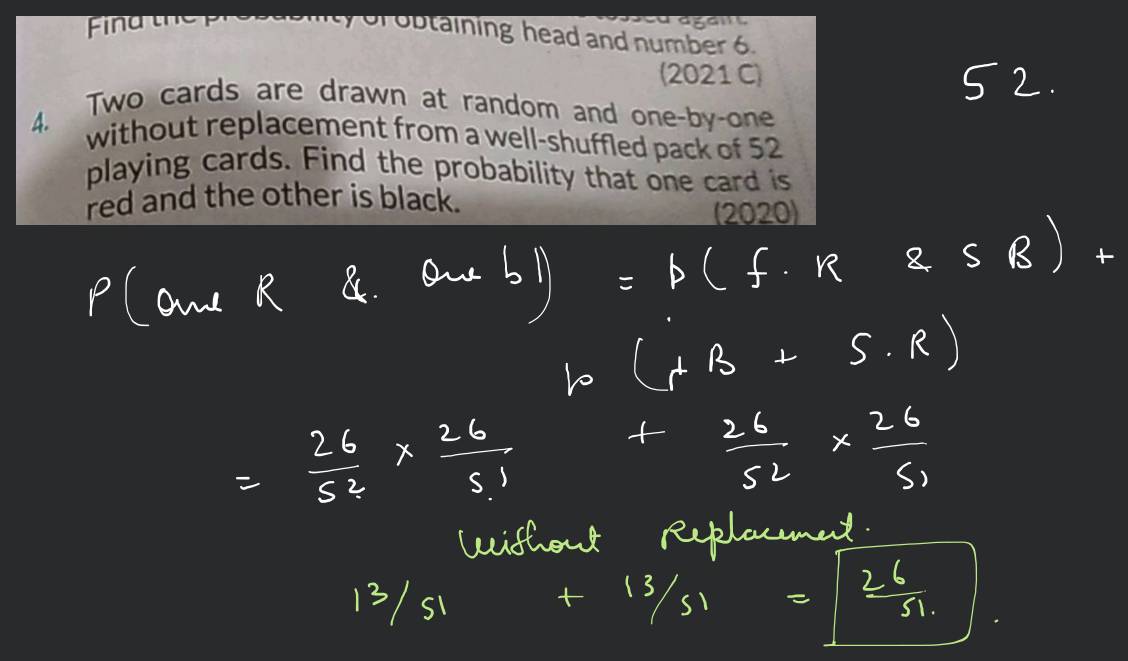 Find the probability of obtaining head and number 6.
(2021 C)
52.
4. Two cards are drawn at random and one-by-one
without replacement from a well-shuffled pack of 52
playing cards. Find the probability that one card is
red and the other is black.
(2020)
P(one R &. One bl) = p(f. R & S B) +
p(f B + S.R)
= 26/52 × 26/51 + 26/52 × 26/51
Without Replacement.
13/51 + 13/51 = 26/51.